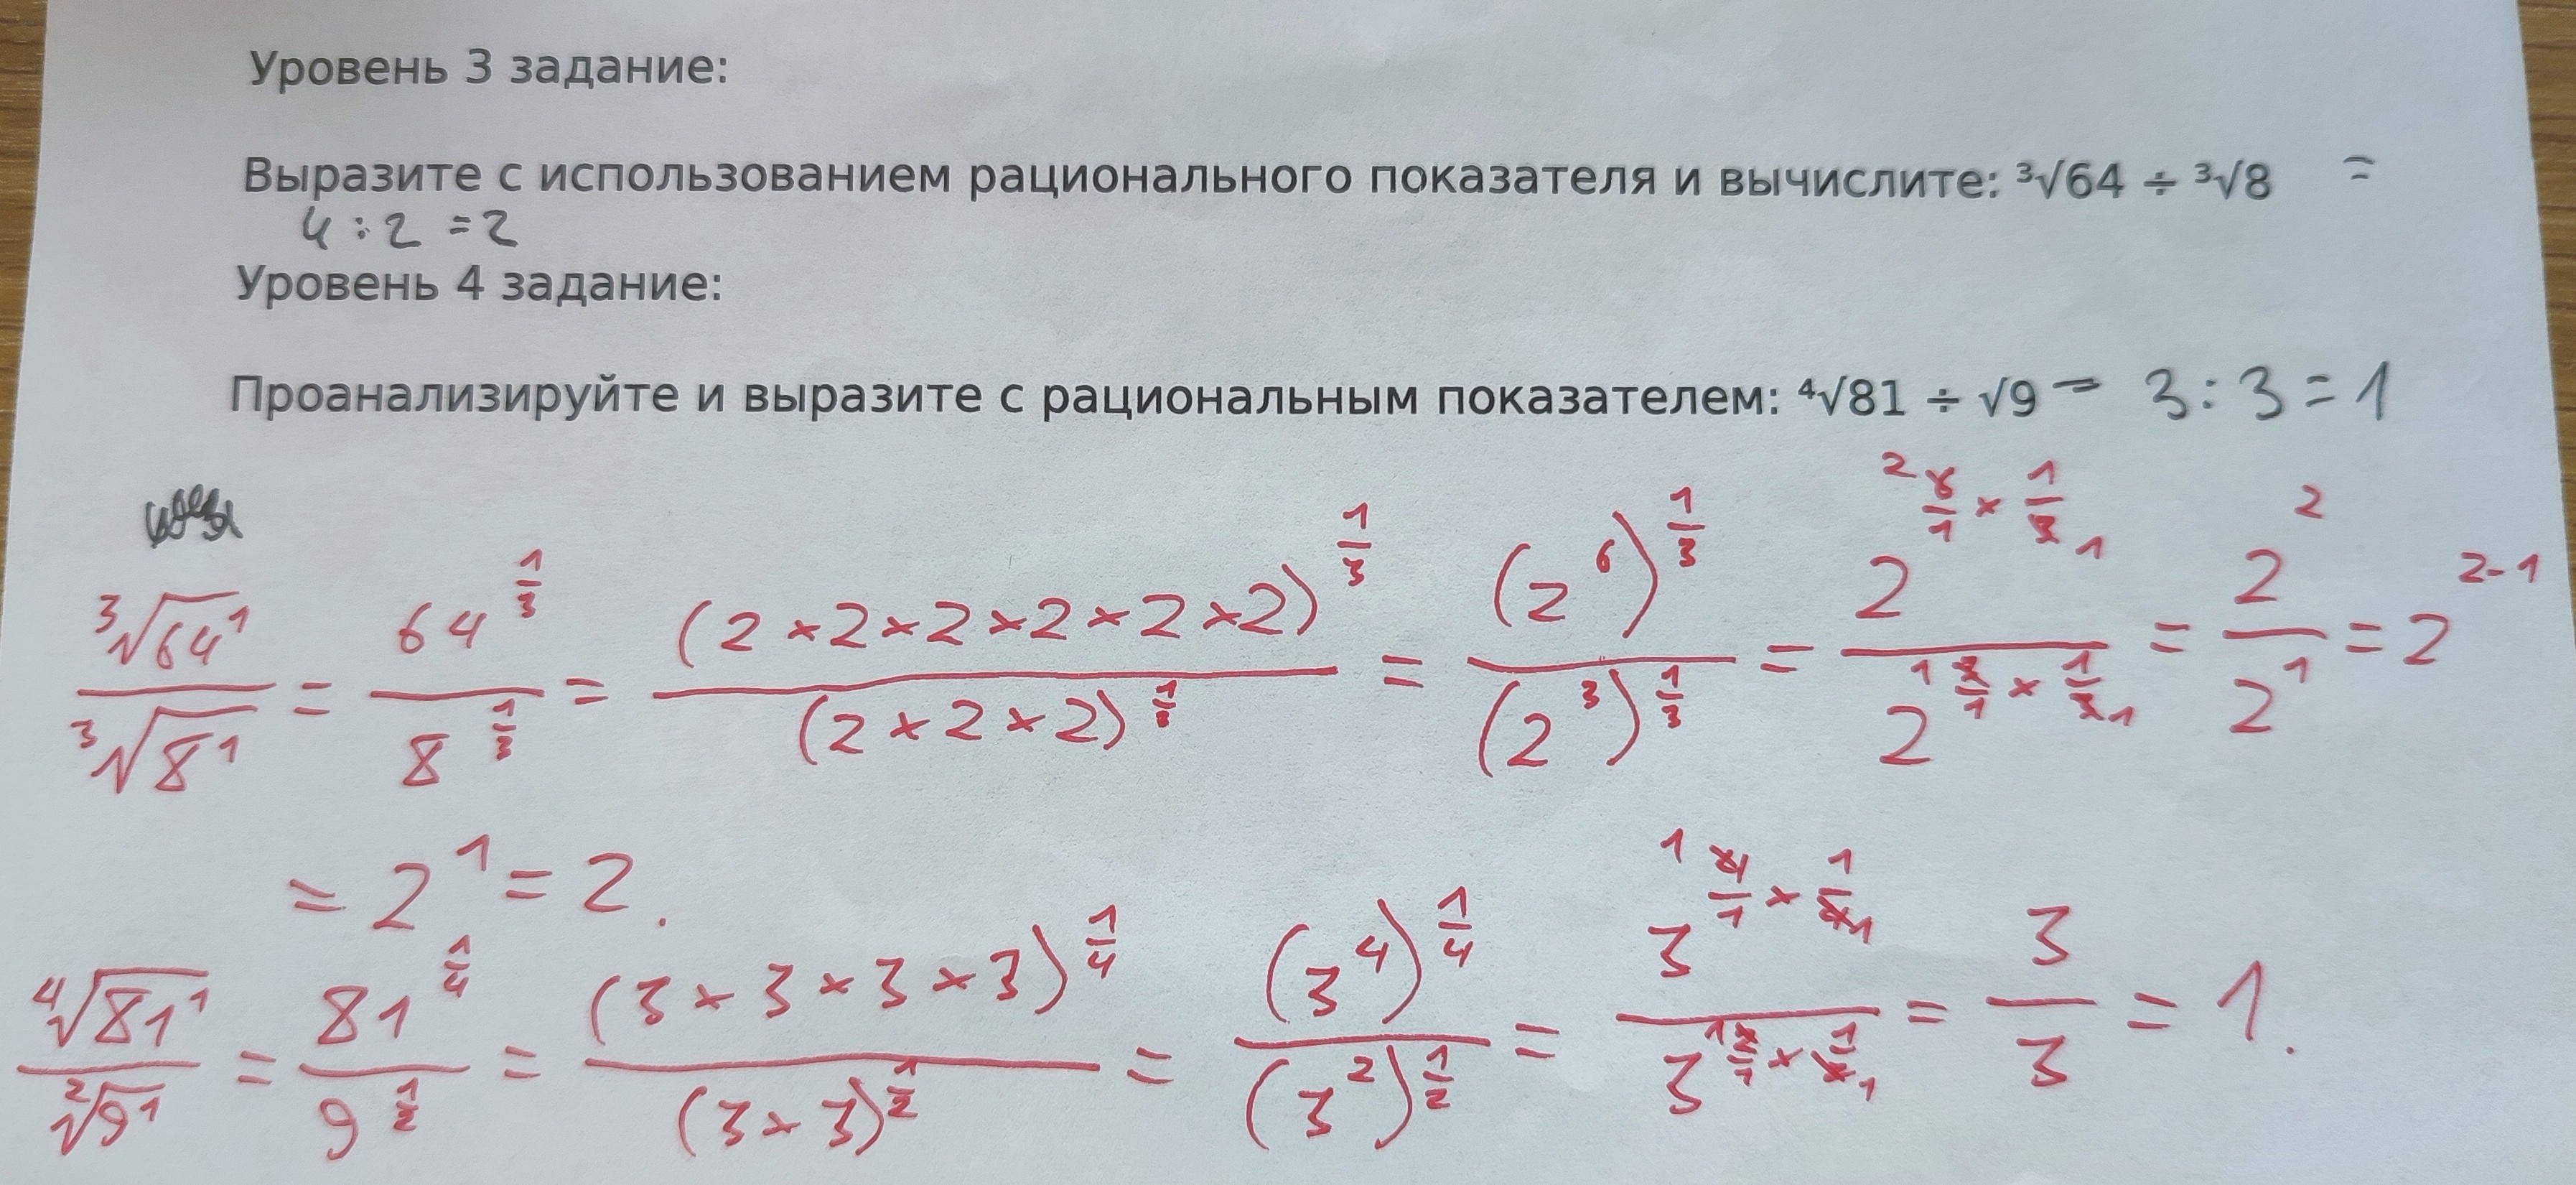 Уровень 3 задание:
Выразите с использованием рационального показателя и вычислите: ³√64 ÷ ³√8 =
4 : 2 = 2
Уровень 4 задание:
Проанализируйте и выразите с рациональным показателем: ⁴√81 ÷ √9 = 3 : 3 = 1
³√64¹ / ³√8¹ = 64^(1/3) / 8^(1/3) = (2×2×2×2×2×2)^(1/3) / (2×2×2)^(1/3) = (2⁶)^(1/3) / (2³)^(1/3) = 2^(6/1 × 1/3) / 2^(3/1 × 1/3) = 2² / 2¹ = 2^(2-1)
= 2¹ = 2.
⁴√81¹ / ²√9¹ = 81^(1/4) / 9^(1/2) = (3×3×3×3)^(1/4) / (3×3)^(1/2) = (3⁴)^(1/4) / (3²)^(1/2) = 3^(4/1 × 1/4) / 3^(2/1 × 1/2) = 3 / 3 = 1.